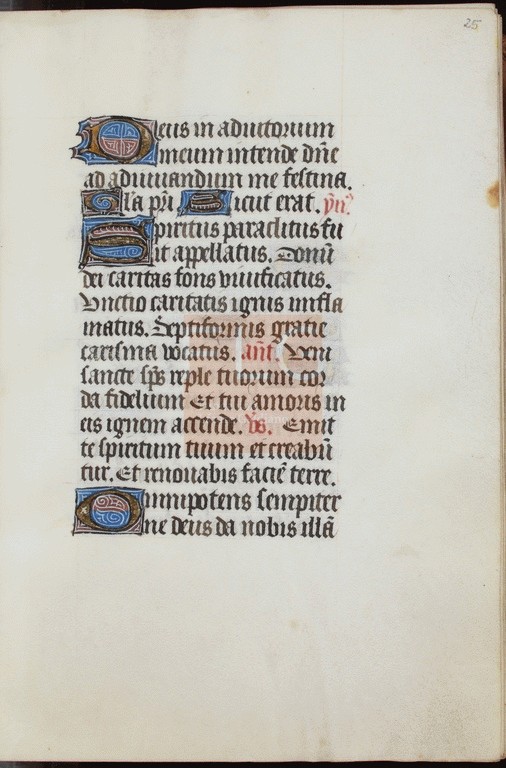 25
Deus in adiutorium
meum intende dñe
ad adiuuandum me festina.
Gl'a pr̃i Sicut erat. ym̃.
Spiritus paraclitus fu
it appellatus. Donũ
dei caritas fons viuificatus.
Vnctio caritatis ignis infla
matus. Septiformis gratie
carisma vocatus. añt. Veni
sancte sp̃s reple tuorum cor
da fidelium Et tui amoris in
eis ignem accende. vs̃. Emit
te spiritum tuum et creabũ
tur. Et renouabis faciẽ terre.
Omnipotens sempiter
ne deus da nobis illã